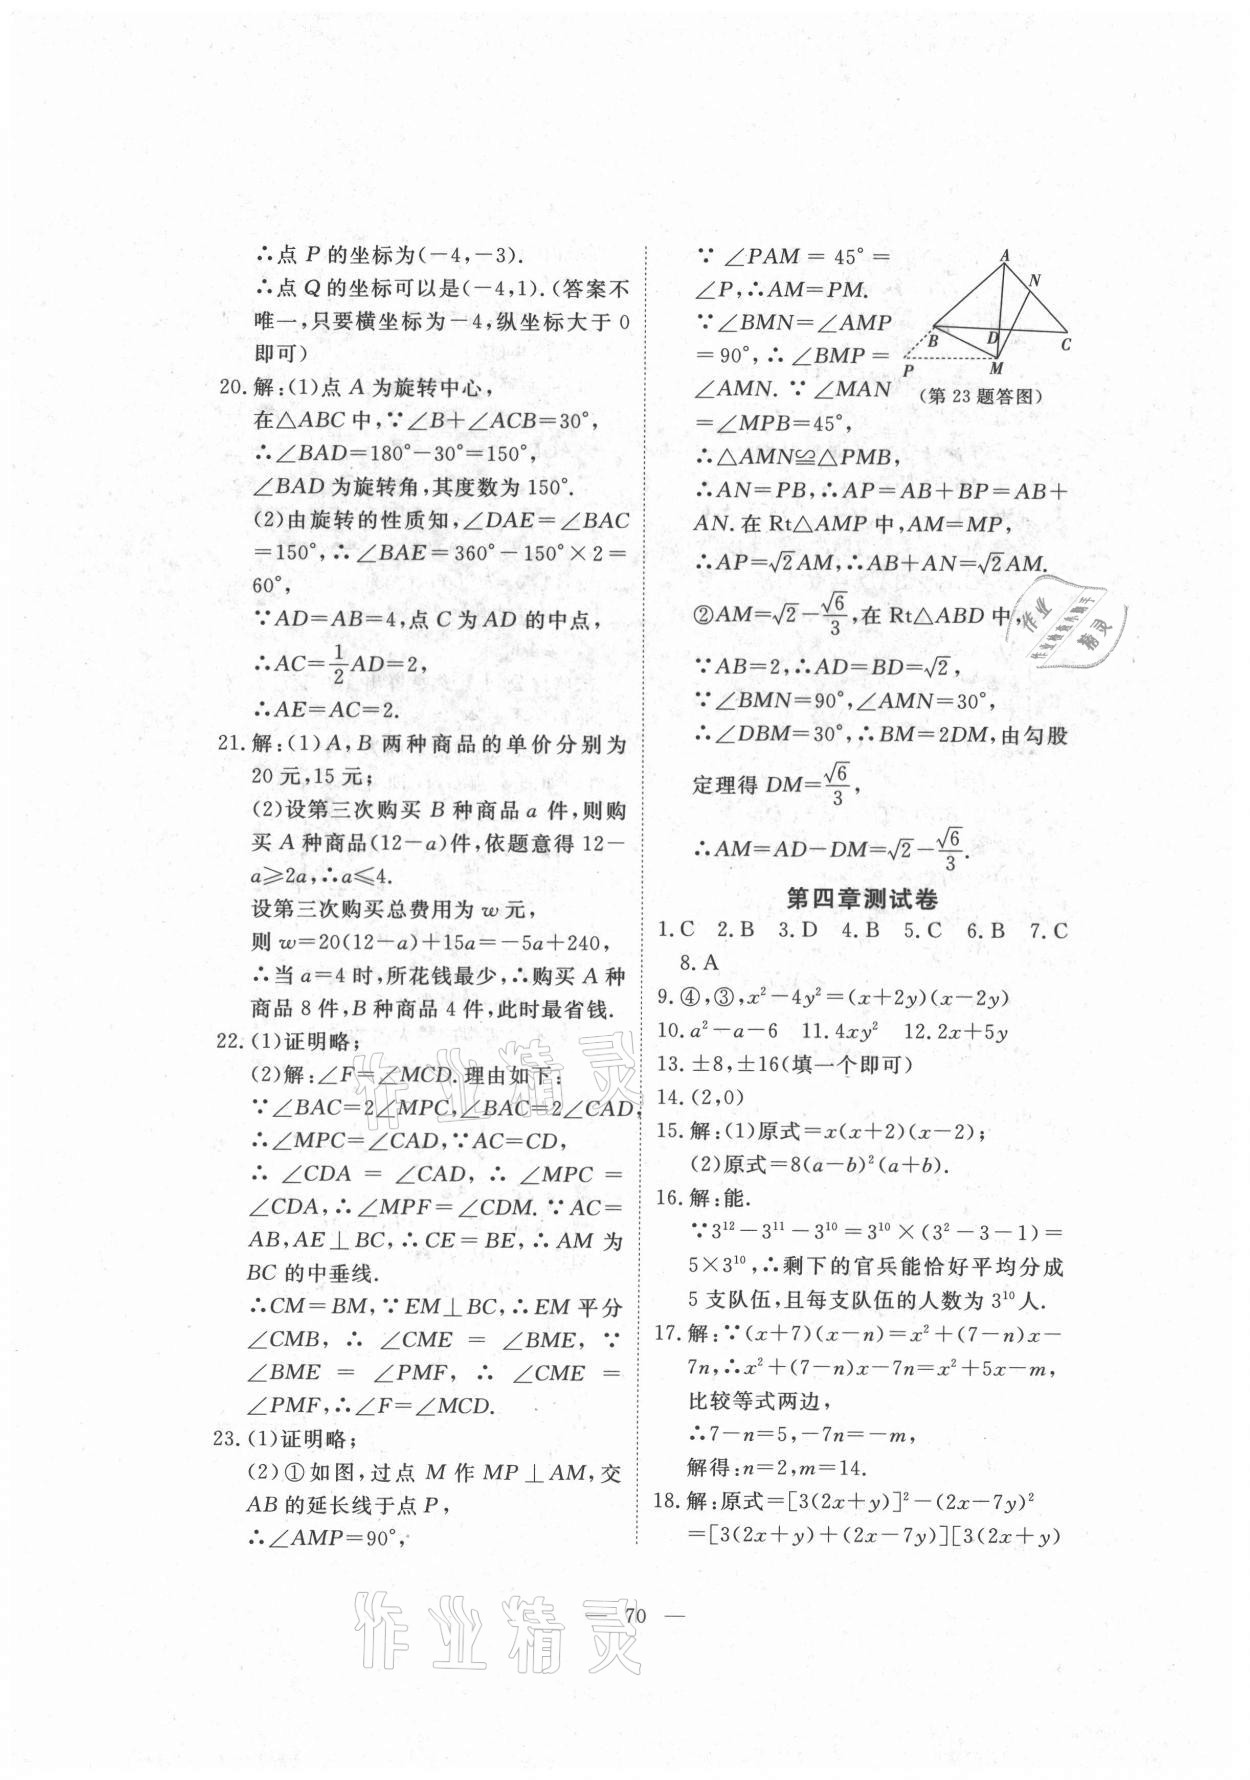 ∴点 P 的坐标为(－4,－3).
∴点 Q 的坐标可以是(－4,1).(答案不
唯一,只要横坐标为－4,纵坐标大于 0
即可)
20. 解:(1)点 A 为旋转中心,
在△ABC 中,∵∠B＋∠ACB=30°,
∴∠BAD=180°－30°=150°,
∠BAD 为旋转角,其度数为 150°.
(2)由旋转的性质知,∠DAE=∠BAC
=150°,∴∠BAE=360°－150°×2=
60°,
∵AD=AB=4,点 C 为 AD 的中点,
∴AC=1/2AD=2,
∴AE=AC=2.
21. 解:(1)A,B 两种商品的单价分别为
20 元,15 元;
(2)设第三次购买 B 种商品 a 件,则购
买 A 种商品(12－a)件,依题意得 12－
a≥2a,∴a≤4.
设第三次购买总费用为 w 元,
则 w=20(12－a)＋15a=－5a＋240,
∴当 a=4 时,所花钱最少,∴购买 A 种
商品 8 件,B 种商品 4 件,此时最省钱.
22. (1)证明略;
(2)解:∠F=∠MCD.理由如下:
∵∠BAC=2∠MPC,∠BAC=2∠CAD,
∴∠MPC=∠CAD,∵AC=CD,
∴∠CDA=∠CAD,∴∠MPC=
∠CDA,∴∠MPF=∠CDM.∵AC=
AB,AE⊥BC,∴CE=BE,∴AM 为
BC 的中垂线.
∴CM=BM,∵EM⊥BC,∴EM 平分
∠CMB,∴∠CME=∠BME,∵
∠BME=∠PMF,∴∠CME=
∠PMF,∴∠F=∠MCD.
23. (1)证明略;
(2)①如图,过点 M 作 MP⊥AM,交
AB 的延长线于点 P,
∴∠AMP=90°,
∵∠PAM=45°=
∠P,∴AM=PM.
∵∠BMN=∠AMP
=90°,∴∠BMP=
∠AMN.∵∠MAN
=∠MPB=45°,
A
N
B
D
C
P
M
(第 23 题答图)
∴△AMN≌△PMB,
∴AN=PB,∴AP=AB＋BP=AB＋
AN.在 Rt△AMP 中,AM=MP,
∴AP=√2AM,∴AB＋AN=√2AM.
②AM=√2－√6/3,在 Rt△ABD 中,
∵AB=2,∴AD=BD=√2,
∵∠BMN=90°,∠AMN=30°,
∴∠DBM=30°,∴BM=2DM,由勾股
定理得 DM=√6/3,
∴AM=AD－DM=√2－√6/3.
第四章测试卷
1. C 2. B 3. D 4. B 5. C 6. B 7. C
8. A
9. ④,③,x²－4y²=(x＋2y)(x－2y)
10. a²－a－6 11. 4xy² 12. 2x＋5y
13. ±8,±16(填一个即可)
14. (2,0)
15. 解:(1)原式=x(x＋2)(x－2);
(2)原式=8(a－b)²(a＋b).
16. 解:能.
∵3¹²－3¹¹－3¹⁰=3¹⁰×(3²－3－1)=
5×3¹⁰,∴剩下的官兵能恰好平均分成
5 支队伍,且每支队伍的人数为 3¹⁰ 人.
17. 解:∵(x＋7)(x－n)=x²＋(7－n)x－
7n,∴x²＋(7－n)x－7n=x²＋5x－m,
比较等式两边,
∴7－n=5,－7n=－m,
解得:n=2,m=14.
18. 解:原式=[3(2x＋y)]²－(2x－7y)²
=[3(2x＋y)＋(2x－7y)][3(2x＋y)
— 70 —
作业精灵
作业精灵
作业
精灵